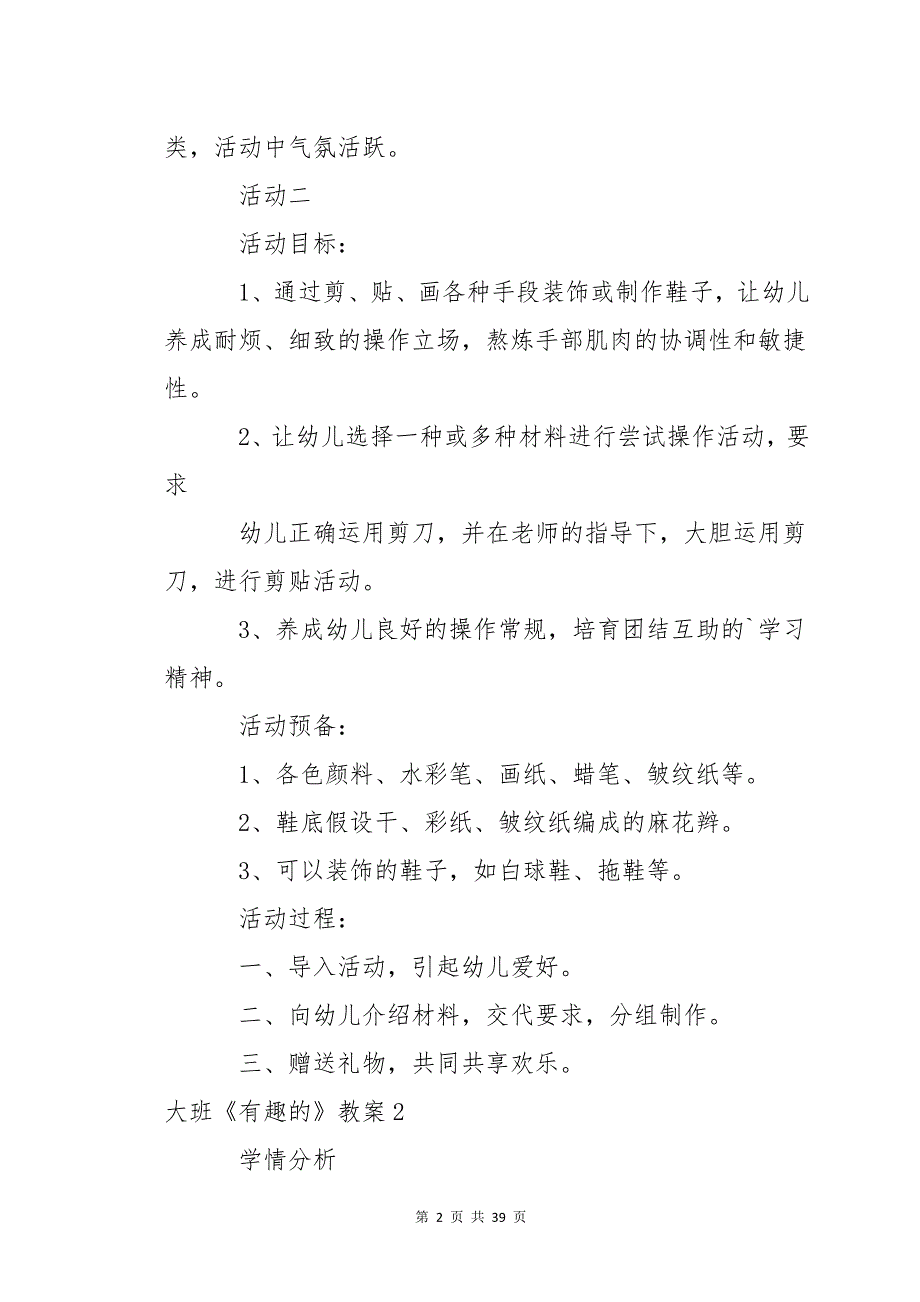 类，活动中气氛活跃。
活动二
活动目标：
1、通过剪、贴、画各种手段装饰或制作鞋子，让幼儿
养成耐烦、细致的操作立场，熬炼手部肌肉的协调性和敏捷
性。
2、让幼儿选择一种或多种材料进行尝试操作活动，要
求
幼儿正确运用剪刀，并在老师的指导下，大胆运用剪
刀，进行剪贴活动。
3、养成幼儿良好的操作常规，培育团结互助的`学习
精神。
活动预备：
1、各色颜料、水彩笔、画纸、蜡笔、皱纹纸等。
2、鞋底假设干、彩纸、皱纹纸编成的麻花辫。
3、可以装饰的鞋子，如白球鞋、拖鞋等。
活动过程：
一、导入活动，引起幼儿爱好。
二、向幼儿介绍材料，交代要求，分组制作。
三、赠送礼物，共同共享欢乐。
大班《有趣的》教案 2
学情分析
第 2 页 共 39 页